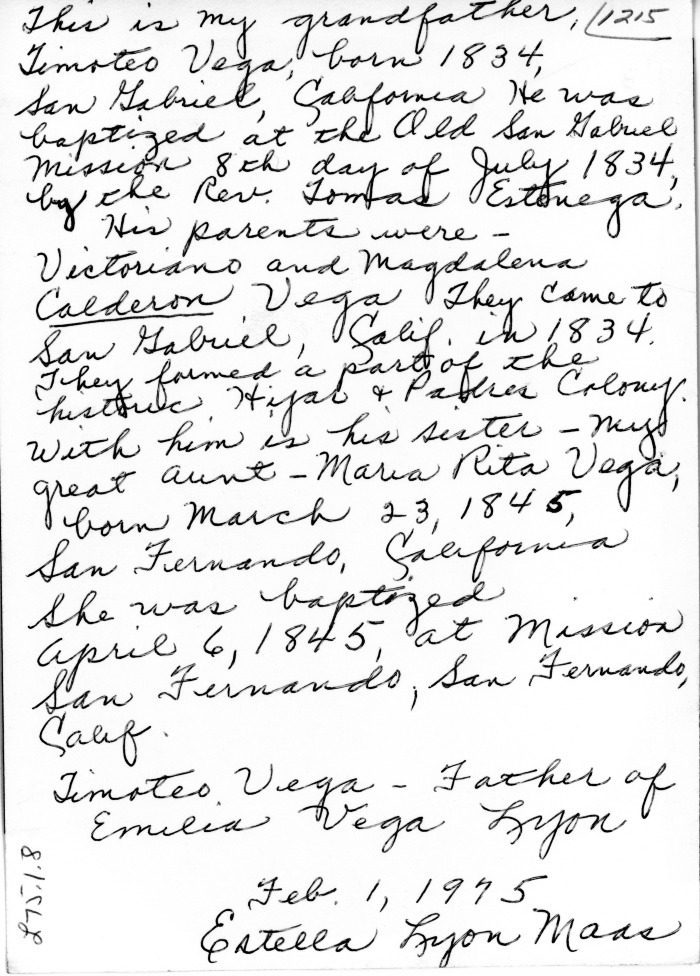 This is my grandfather, 1215
Timoteo Vega, born 1834,
San Gabriel, California He was
baptized at the Old San Gabriel
Mission 8th day of July 1834,
by the Rev. Tomas Estenega.
His parents were -
Victoriano and Magdalena
Calderon Vega They came to
San Gabriel, Calif. in 1834.
They formed a part of the
historic Hijar & Padres Colony.
With him is his sister - my
great aunt - Maria Rita Vega,
born March 23, 1845,
San Fernando, California
She was baptized
April 6, 1845, at Mission
San Fernando, San Fernando,
Calif.
Timoteo Vega - Father of
Emilia Vega Lyon
Feb. 1, 1975
Estella Lyon Maas
L75.1.8